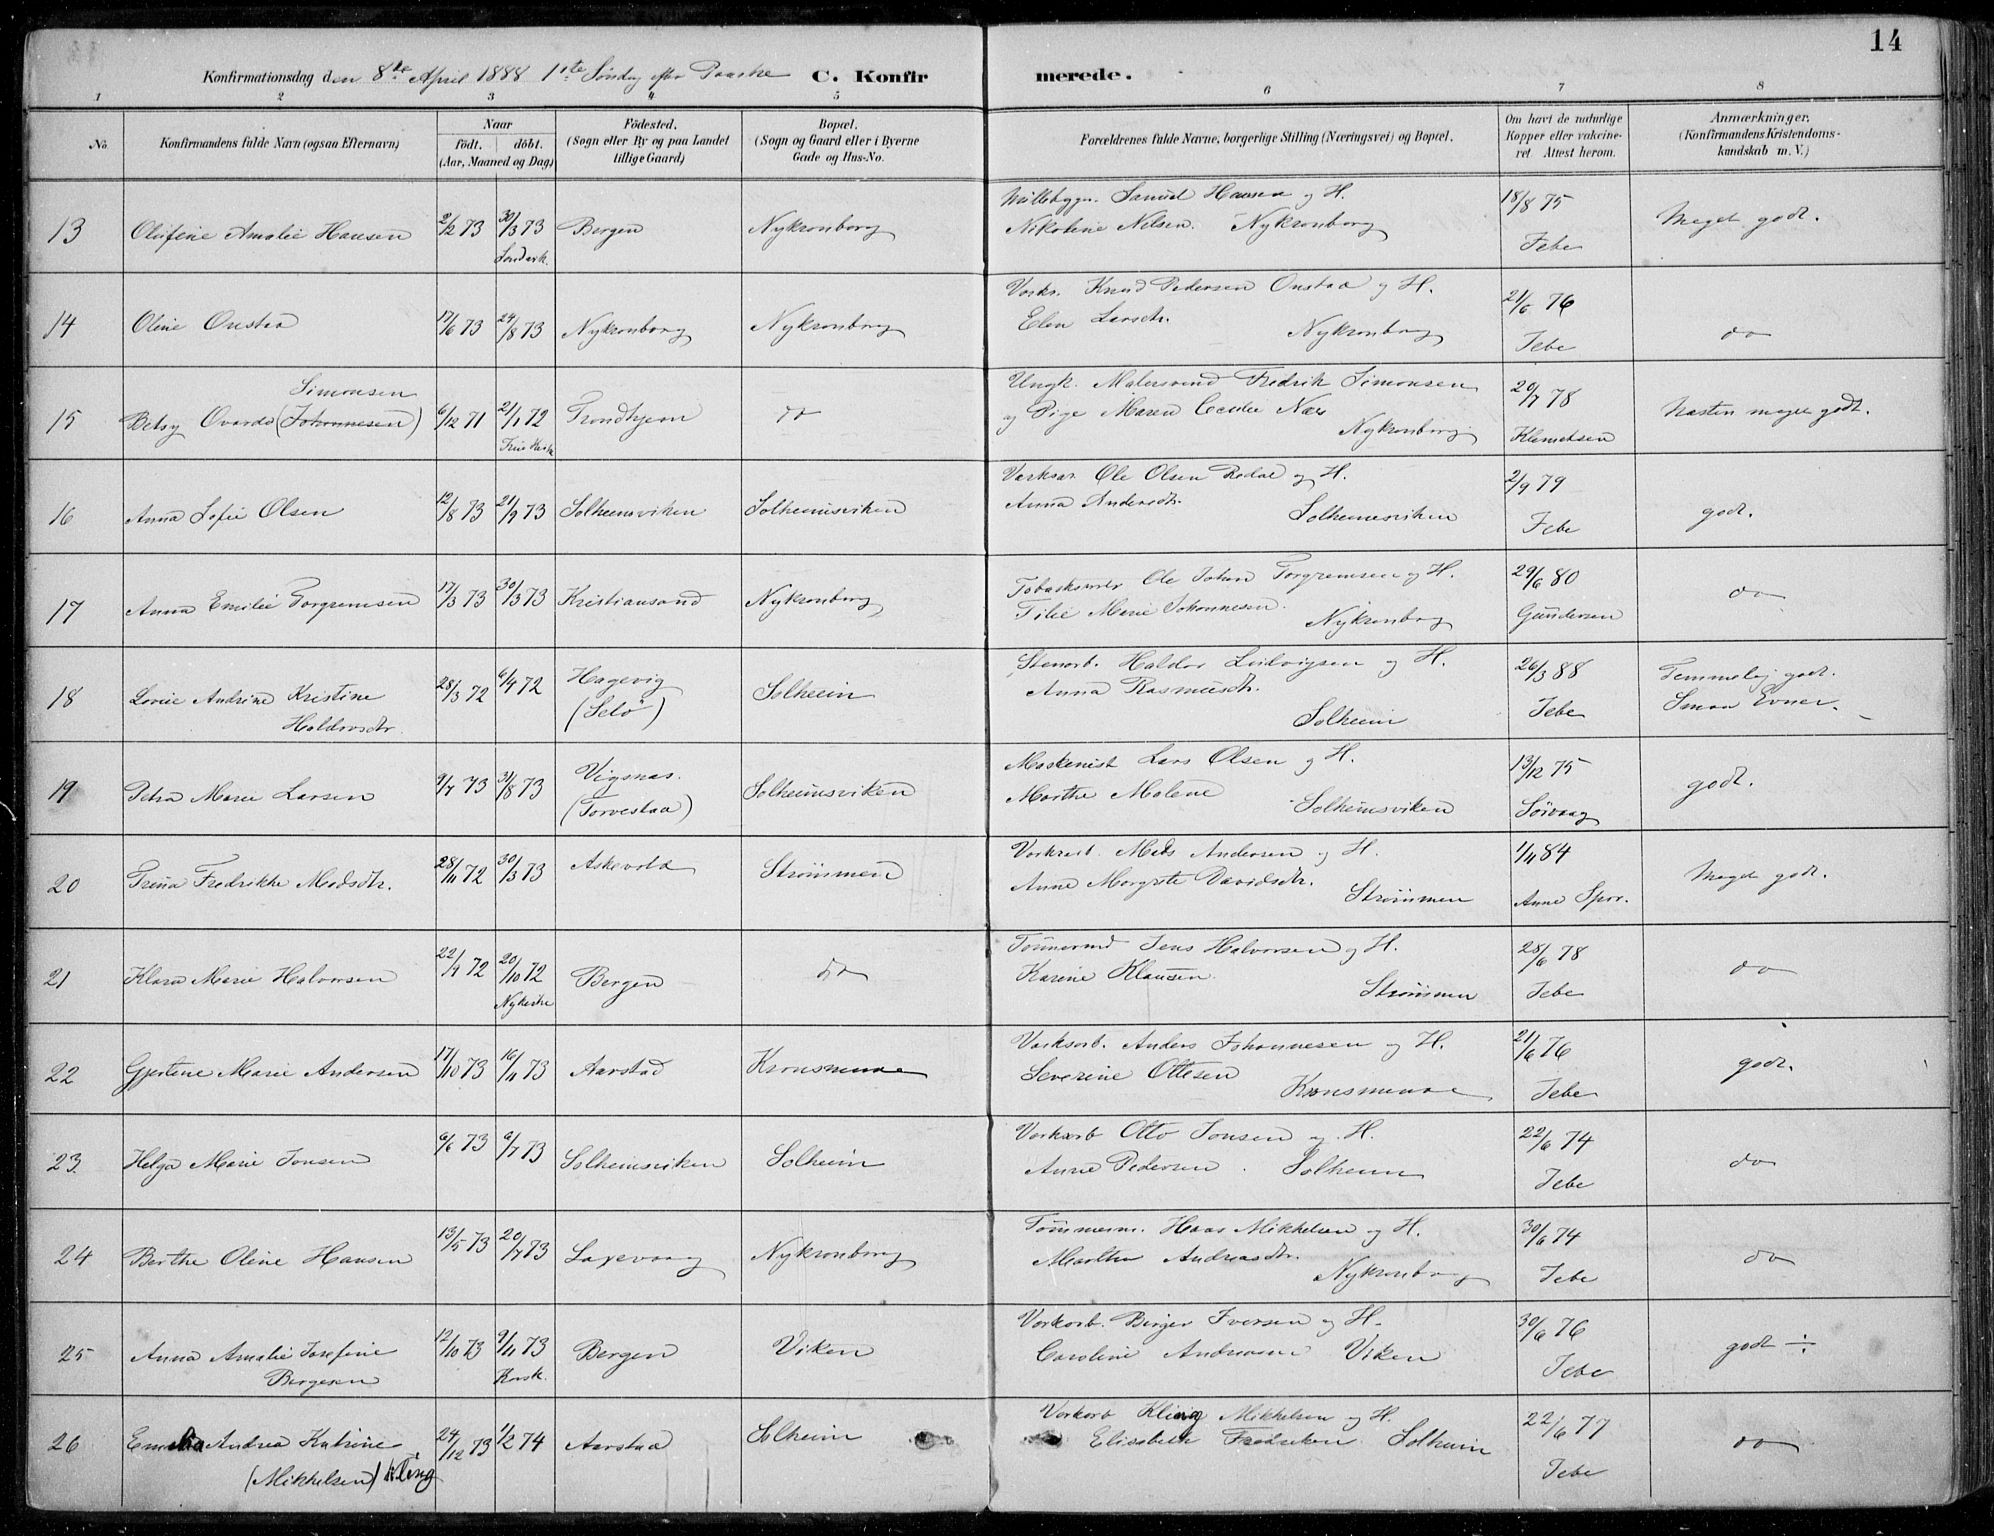 14
Konfirmationsdag den 8de April 1888 1ste Søndag efter Paaske C. Konfirmerede.
1 2 3 4 5 6 7 8
No
Konfirmandens fulde Navn (ogsaa Efternavn)
Naar
født. døbt.
(Aar, Maaned og Dag)
Fødested.
(Sogn eller By og paa Landet
tillige Gaard)
Bopæl.
(Sogn og Gaard eller i Byerne
Gade og Hus-No.
Forældrenes fulde Navne, borgerlige Stilling (Næringsvei) og Bopæl.
Om havt de naturlige
Kopper eller vakcine-
ret Attest herom.
Anmærkninger.
(Konfirmandens Kristendoms-
kundskab m. V.)
13 Olufine Amalie Hansen 2/2 73 30/3 73 Bergen Nykronborg
Samuel Hansen og H.
Nikoline Nilsen. Nykronborg
18/8 75
Jebe
Meget godt.
14 Oline Onstad 17/6 73 24/8 73 Nykronborg Nykronborg
Knud Pedersen Onstad og H.
Elen Larsdtr. Nykronborg
21/6 76
Jebe
do
15 Betsy Ovardo (Johannesen) Simonsen 6/12 71 21/1 72 Trondhjem do
Ungk. Malersvend Fredrik Simonsen
og Pige Maren Cecilie Næs
Nykronborg
29/7 78
Klemetsen
Næsten meget godt.
16 Anna Sofie Olsen 12/8 73 21/9 73 Solheimsviken Solheimsviken
Ole Olsen Redal og H.
Anna Andersdtr. Solheimsviken
2/9 79
Jebe
godt.
17 Anna Emilie Torgremsen 17/3 73 30/3 73 Kristiansand Nykronborg
Ole Johan Torgremsen og H.
Tilie Marie Johannesen.
Nykronborg
29/6 80
Gundersen
do
18 Lovise Andrine Kristine
Haldorsdtr. 28/3 72 6/4 72 Hagevig
(Selö) Solheim
Stenarb. Haldor Ludvigsen og H.
Anna Rasmusdtr.
Solheim
26/3 88
Jebe
Temmelig godt.
Smaa Evner.
19 Petra Marie Larsen 9/7 73 31/8 73 Vigsnæs.
(Torvestad) Solheimsviken
Maskenist Lars Olsen og H.
Marthe Malene Solheimsviken
13/12 75
Sörvaag
godt.
20 Trina Fredrikke Madsdtr. 28/11 72 30/3 73 Askevold Strömmen
Mads Andersen og H.
Anne Margrete Davidsdtr.
Strömmen
1/11 84
Anne Spor.
Meget godt.
21 Klara Marie Halvorsen 22/9 72 20/10 72 Bergen do
Nykirke
Tömmermd Jens Halvorsen og H.
Karine Klausen.
Strömmen
28/6 78
Jebe
do
22 Gjertine Marie Andersen 17/10 73 16/11 73 Aarstad Kronsminde
Værksarb. Anders Johannesen og H.
Severine Ottesen
Kronsminde
21/6 76
Jebe
godt.
23 Helga Marie Jonsen 6/6 73 6/7 73 Solheimsviken Solheim
Otto Jonsen og H.
Anne Pedersen. Solheim
22/6 74
Jebe
do
24 Berthe Oline Hansen 13/5 73 20/7 73 Laxevaag Nykronborg
Tömmerm. Hans Mikkelsen og H.
Marthe Andreasdtr.
Nykronborg
30/6 74
Jebe
do
25 Anna Amalie Josefine
Bergesen 12/10 73 9/11 73 Bergen Viken
Korsk.
Birger Iversen og H.
Caroline Andreasen Viken
30/6 76
Jebe
godt ÷
26 Emelia Andrea Katrine
(Mikkelsen) Kling 24/12 73 1/2 74 Aarstad Solheim
Kling Mikkelsen og H.
Elisabeth Fredriksen. Solheim
22/6 77
Jebe
do